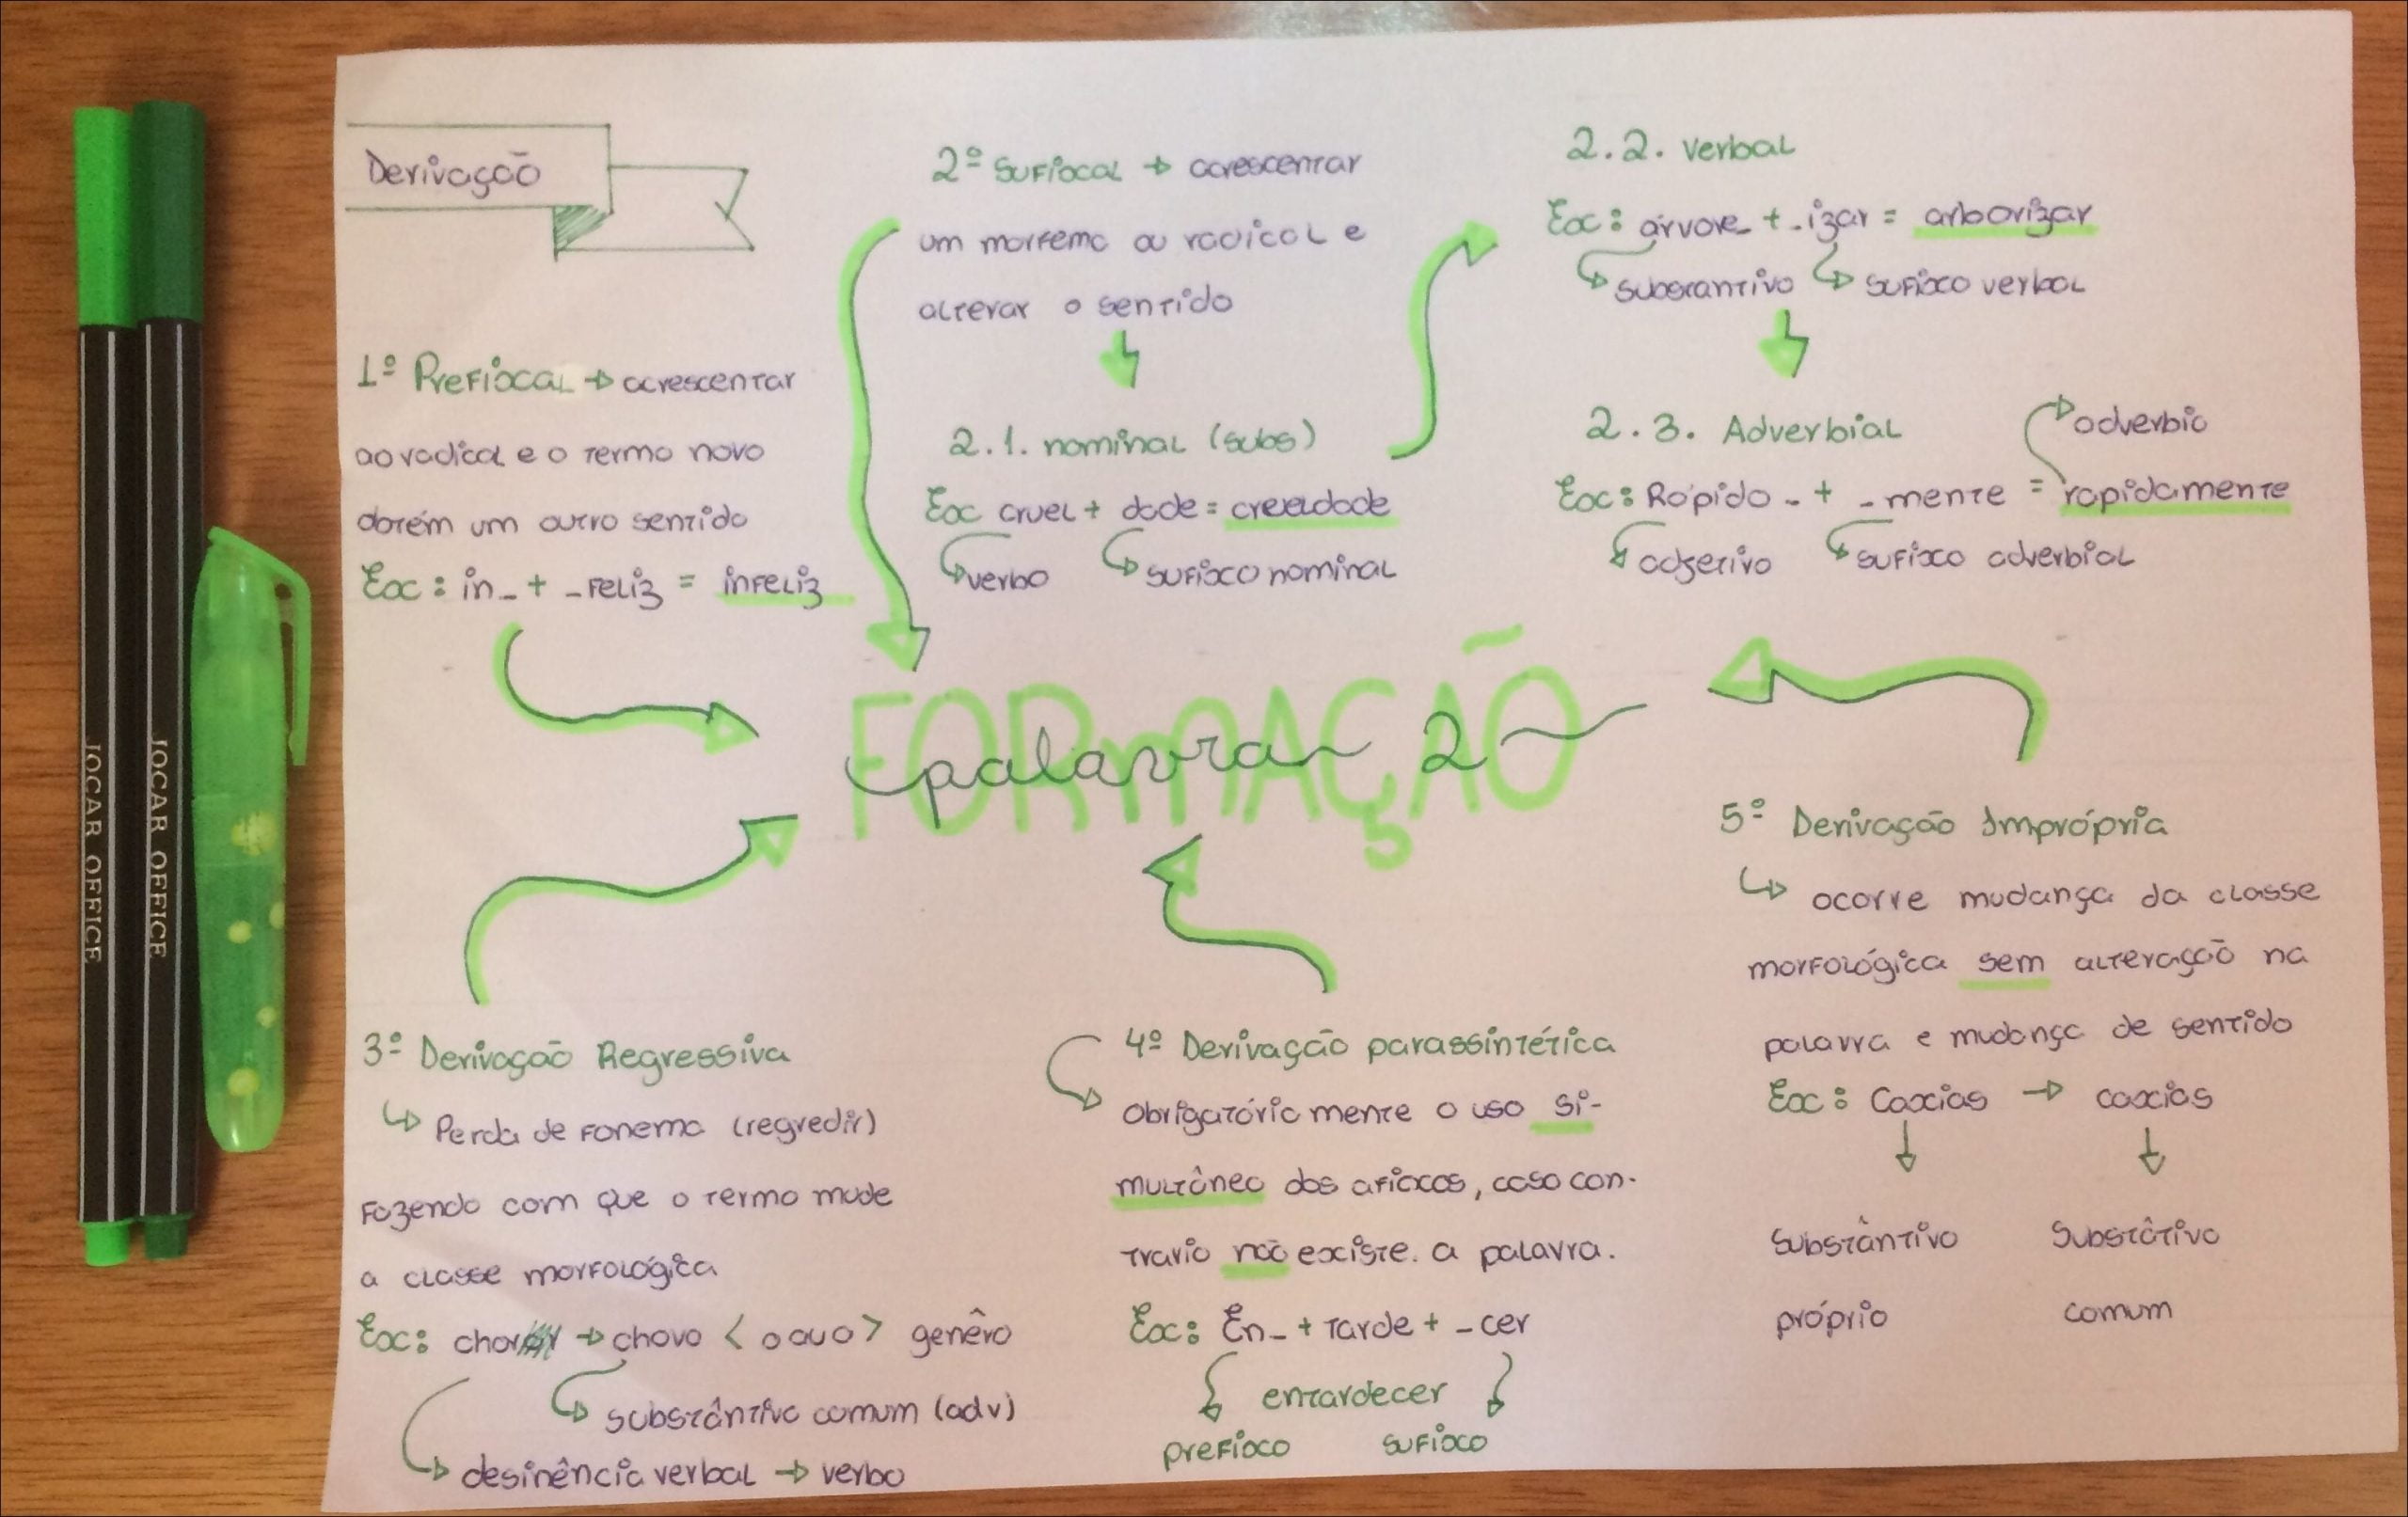 Derivação
1º Prefixal → acrescentar
ao radical e o termo novo
obtém um outro sentido
Ex: in_ + _feliz = infeliz
2º sufixal → acrescentar
um morfema ao radical e
alterar o sentido
2.1. nominal (subs)
Ex cruel + dade = creeldade
verbo sufixo nominal
2.2. verbal
Ex: árvore_ + _izar = arborizar
substantivo sufixo verbal
2.3. Adverbial
adverbio
Ex: Rápido _ + _mente = rapidamente
adjetivo sufixo adverbial
FORMAÇÃO
palavra 2
3º Derivação Regressiva
Perda de fonema (regredir)
fazendo com que o termo mude
a classe morfológica
Ex: chorar → choro < o a u o > genêro
substântivo comum (adv)
desinência verbal → verbo
4º Derivação parassintética
Obrigatória mente o uso si-
multâneo dos afixos, caso con-
trario não existe. a palavra.
Ex: En_ + tarde + _cer
entardecer
prefixo sufixo
5º Derivação Imprópria
ocorre mudança da classe
morfológica sem alteração na
palavra e mudança de sentido
Ex: Caxias → caxias
Substântivo Substâtivo
próprio comum
JOCAR OFFICE
JOCAR OFFICE